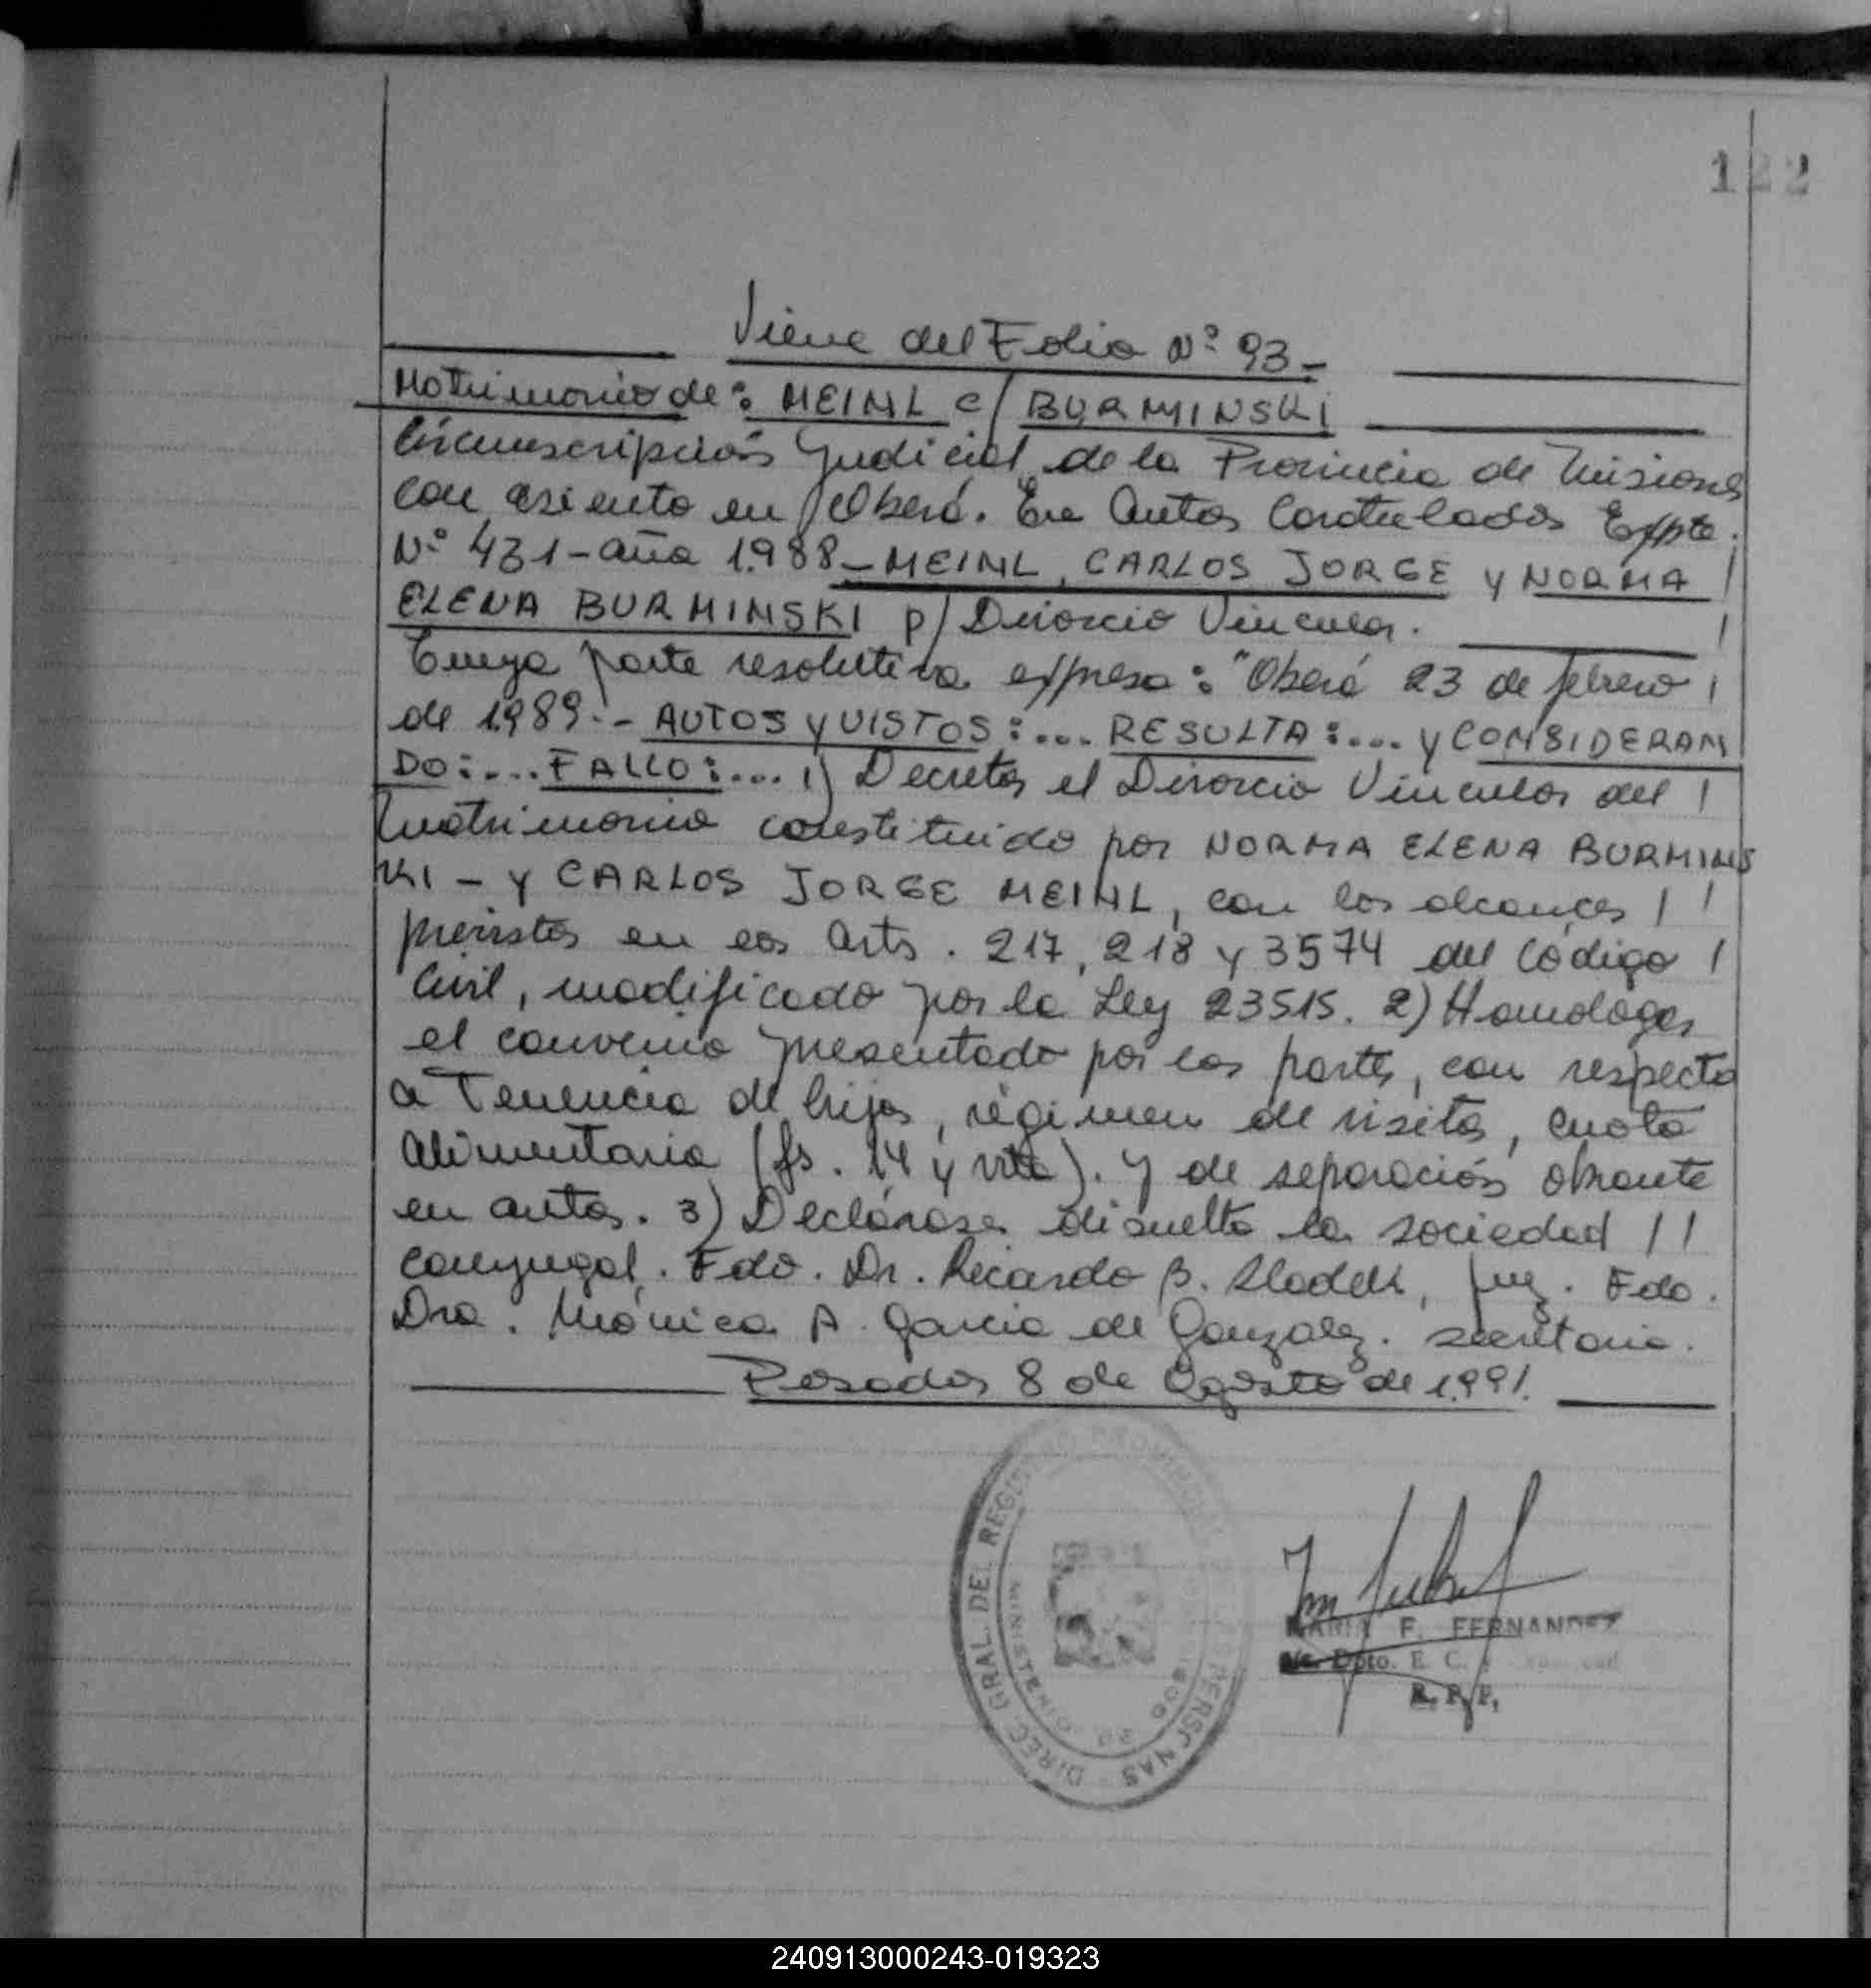 122
Viene del Folio Nº 93-
Matrimonio de: MEINL c/ BURMINSKI
Circunscripción Judicial de la Provincia de Misiones
con asiento en Oberá. En Autos Caratulados Expte.
Nº 431-año 1.988-MEINL, CARLOS JORGE y NORMA
ELENA BURMINSKI p/ Divorcio Vincular.
Cuya parte resolutiva expresa: "Oberá 23 de febrero
de 1.989.- AUTOS y VISTOS:... RESULTA:... y CONSIDERAN
DO:... FALLO:... 1) Decretar el Divorcio Vincular del
Matrimonio constituido por NORMA ELENA BURMINS
KI - y CARLOS JORGE MEINL, con los alcances
previstos en los arts. 217, 218 y 3574 del Código
Civil, modificado por la Ley 23515. 2) Homologar
el convenio presentado por las partes, con respecto
a Tenencia de hijos, régimen de visitas, cuota
alimentaria (fs. 14 y vta). y de separación obrante
en autos. 3) Declárase disuelta la sociedad
conyugal. Fdo. Dr. Ricardo B. Juez. Fdo.
Dra. Mónica A. Garcia de Gonzalez. secretaria.
Posadas 8 de Agosto de 1.991.
DIREC. GRAL. DEL REGISTRO PROVINCIAL PERSONAS
MINISTERIO DE
MARIA F. FERNANDEZ
Dpto. E. C.
R. P. P.
240913000243-019323